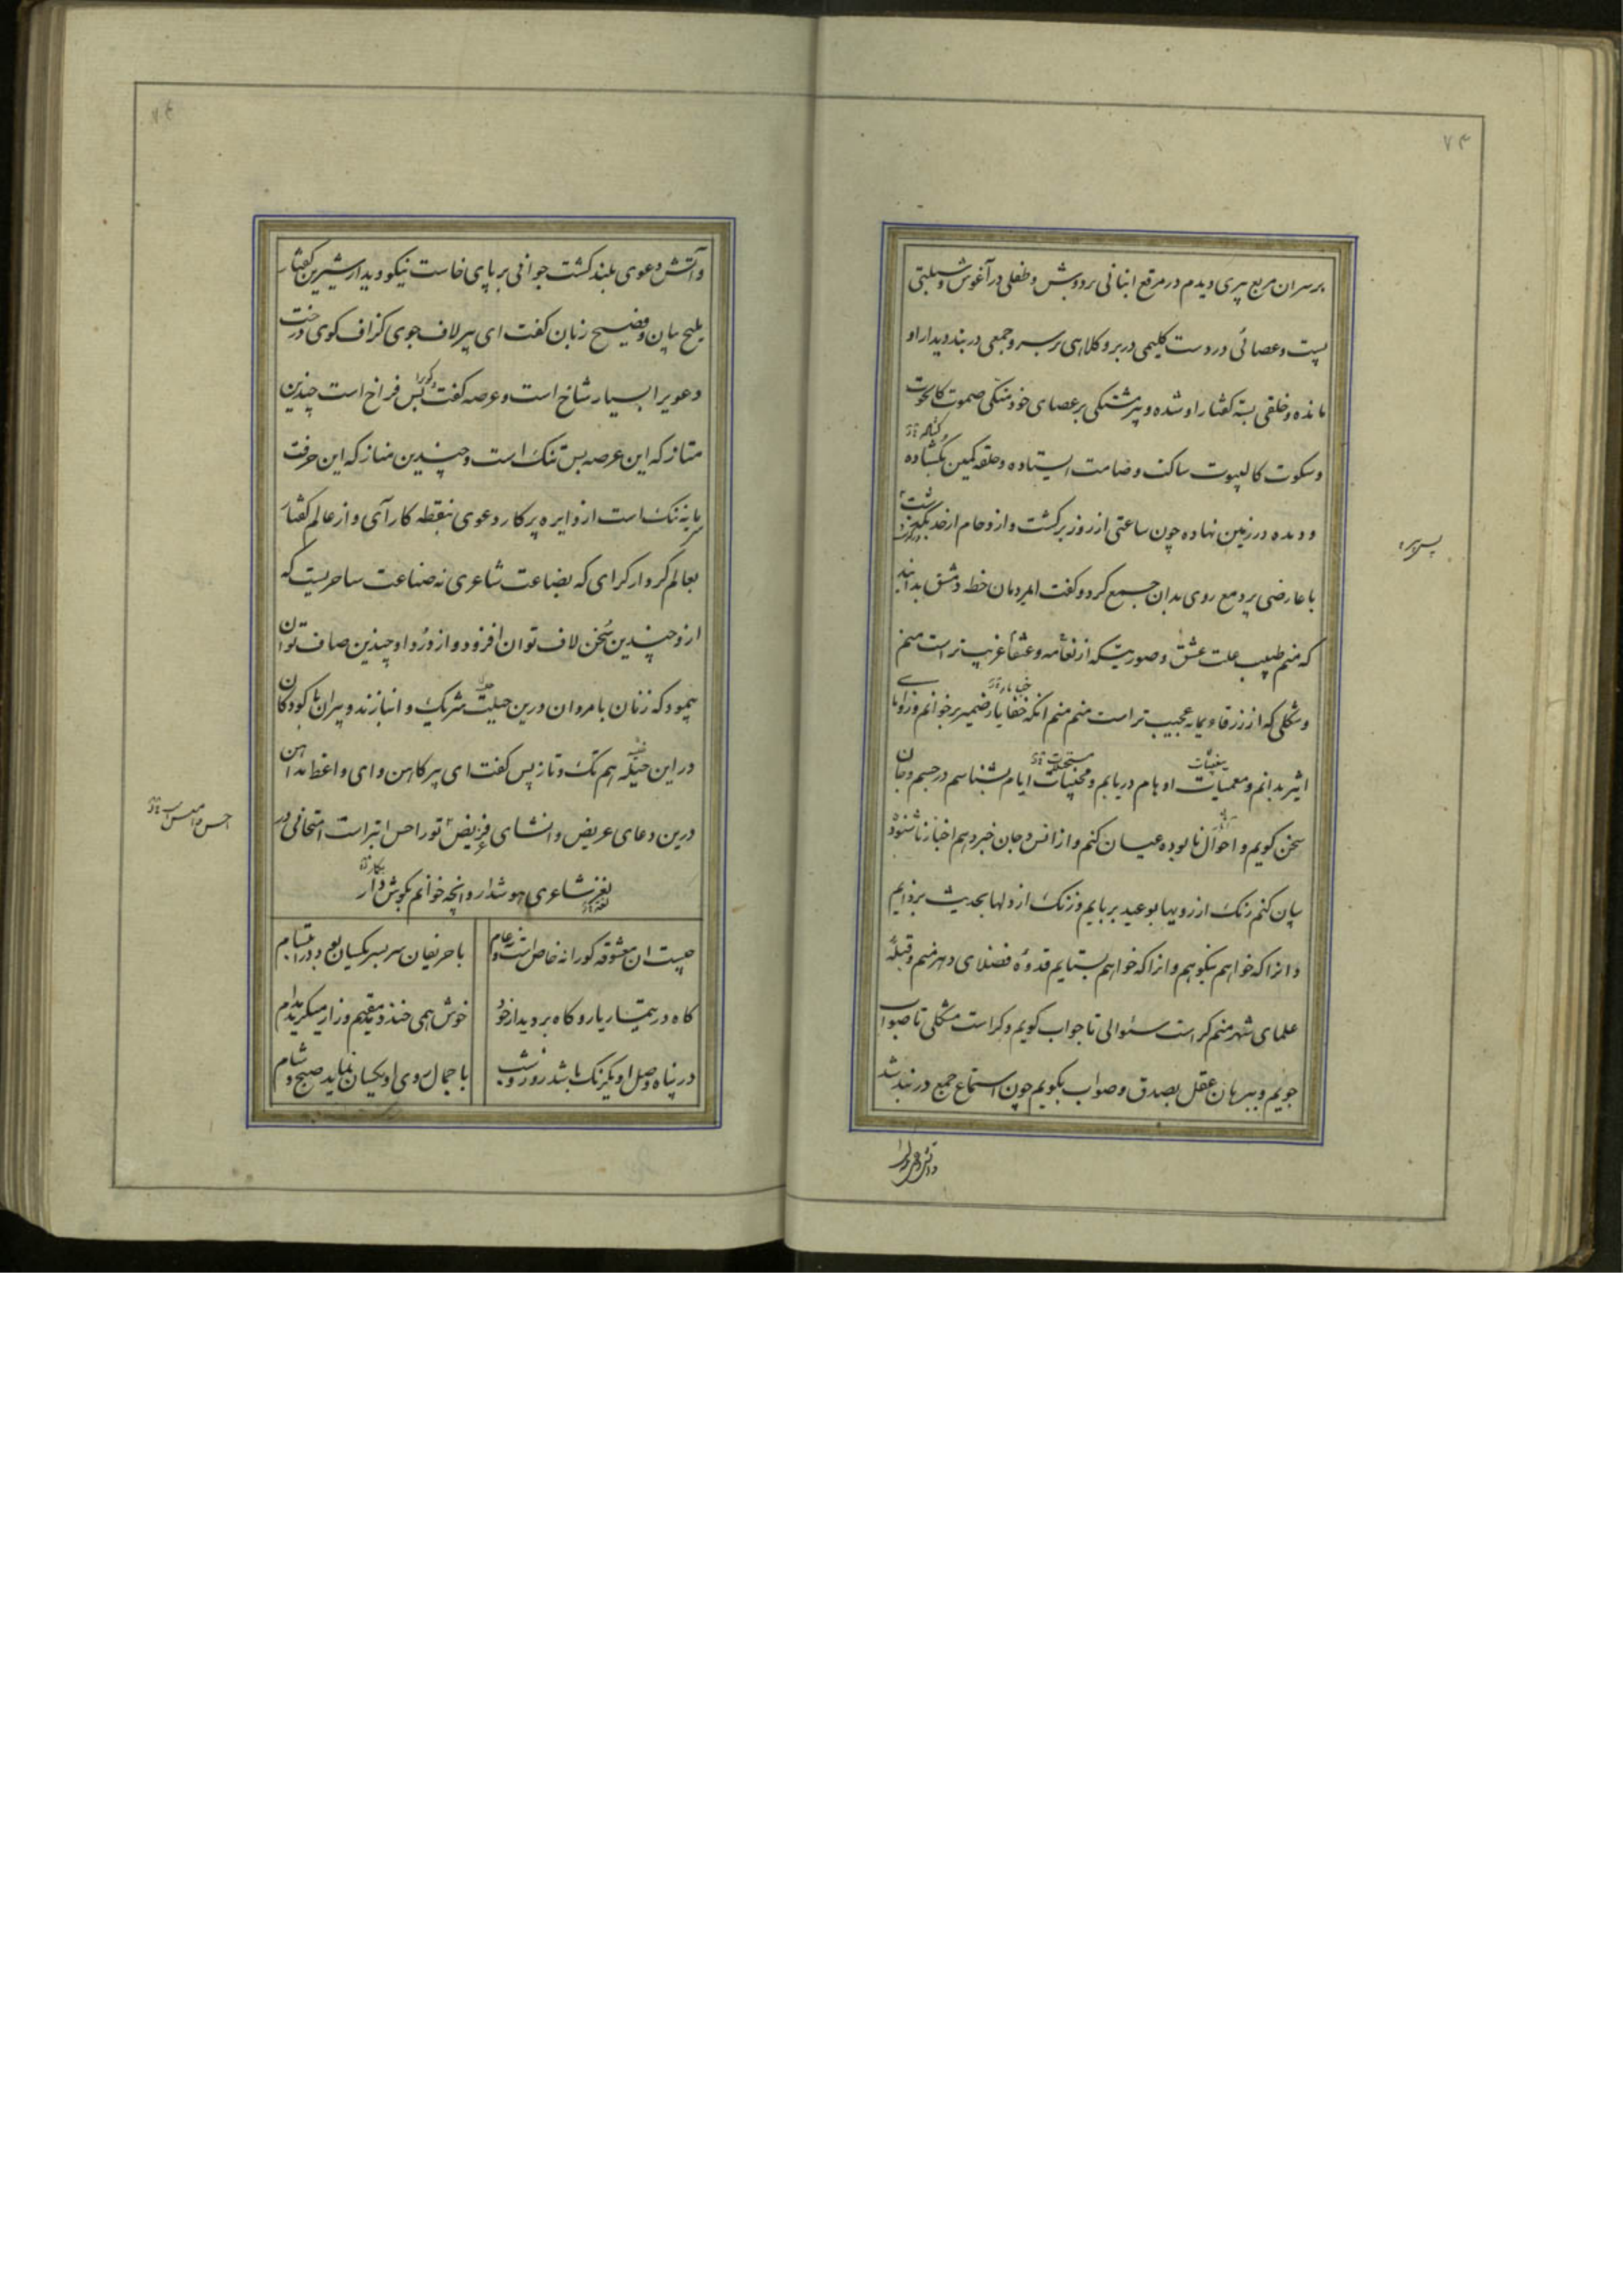 ۷۴
بر سر ان مربع پیری دیدم در مرقع انبانی بر دوش و طفلی در آغوش و شیلتی
پست و عصائی در دست گلیمی در بر و کلاهی بر سر و جمعی در بند دیدار او
مانده و خلقی بسته گفتار او شده و پیر متکی بر عصای خود متکی صموت کالحوت
و سکوت کالبیوت ساکت و صامت ایستاده و حلقه کمین بگشاده
و دیده در زمین نهاده چون ساعتی از روز برگشت و ازدحام از حد
با عارضی پر دمع روی بدان جمع کرد و گفت ای مردمان خطه دمشق بدانید
که منم طبیب علت عشق و صورتیکه از نعامه و عنقا غریب تر است منم
و شکلی که از زرقاء یمامه عجیب تر است منم منم انکه خفایا ضمیر بر خوانم و زوایا
اثیر بدانم و معمیات اوهام دریابم و مخبیات ایام بشناسم در جسم و جان
سخن گویم و احوال نابوده عیان کنم و از انس و جان خبر دهم اخبار ناشنوده
بیان کنم رنک از رویها بوعید بربایم و زنک از دلها بحدیث بزدایم
و انرا که خواهم بنکوهم و انرا که خواهم بستایم قدوه فضلای دهر منم و قبله
علمای شهر منم کراست سئوالی تا جواب گویم و کراست مشکلی تا صواب
جویم و ببرهان عقل بصدق و صواب بگویم چون استماع جمع در بند شد
و آتش دعوی بلند کشت جوانی بر پای خاست نیکو دیدار شیرین گفتار
ملیح بیان و فصیح زبان گفت ای پیر لاف جوی گزاف گوی درخت
دعویرا بسیار شاخ است و عرصه گفت بس فراخ است چندین
متاز که این عرصه بس تنک است و چندین مناز که این حرفت
مایه ننک است از دایره پرگار دعوی بنقطه کار آی و از عالم گفتار
بعالم کردار گرای که بضاعت شاعری نه صناعت ساحریست که
ازو چندین سخن لاف توان افزود و از درد او چندین صاف توان
پیمود که زنان با مردان درین حیلت شریک و انبازند و پیران با کودکان
در این حیله هم تک و تاز پس گفت ای پیر کاهن و ای واعظ مداهن
درین دعای عریض و انشای تو را حس ابتر است امتحانی در
لغز شاعری هوشدار و انچه خوانم بگوش دار
چیست ان معشوقه کورا نه خاص است و عام
با حریفان سر بسر یکسان بود در ابتسام
گاه در تیمار یار و گاه بر دیدار خود
خوش همی خندد مقیم و زار میگرید مدام
در پناه وصل او یکرنک باشد روز و شب
با جمال روی او یکسان نماید صبح و شام